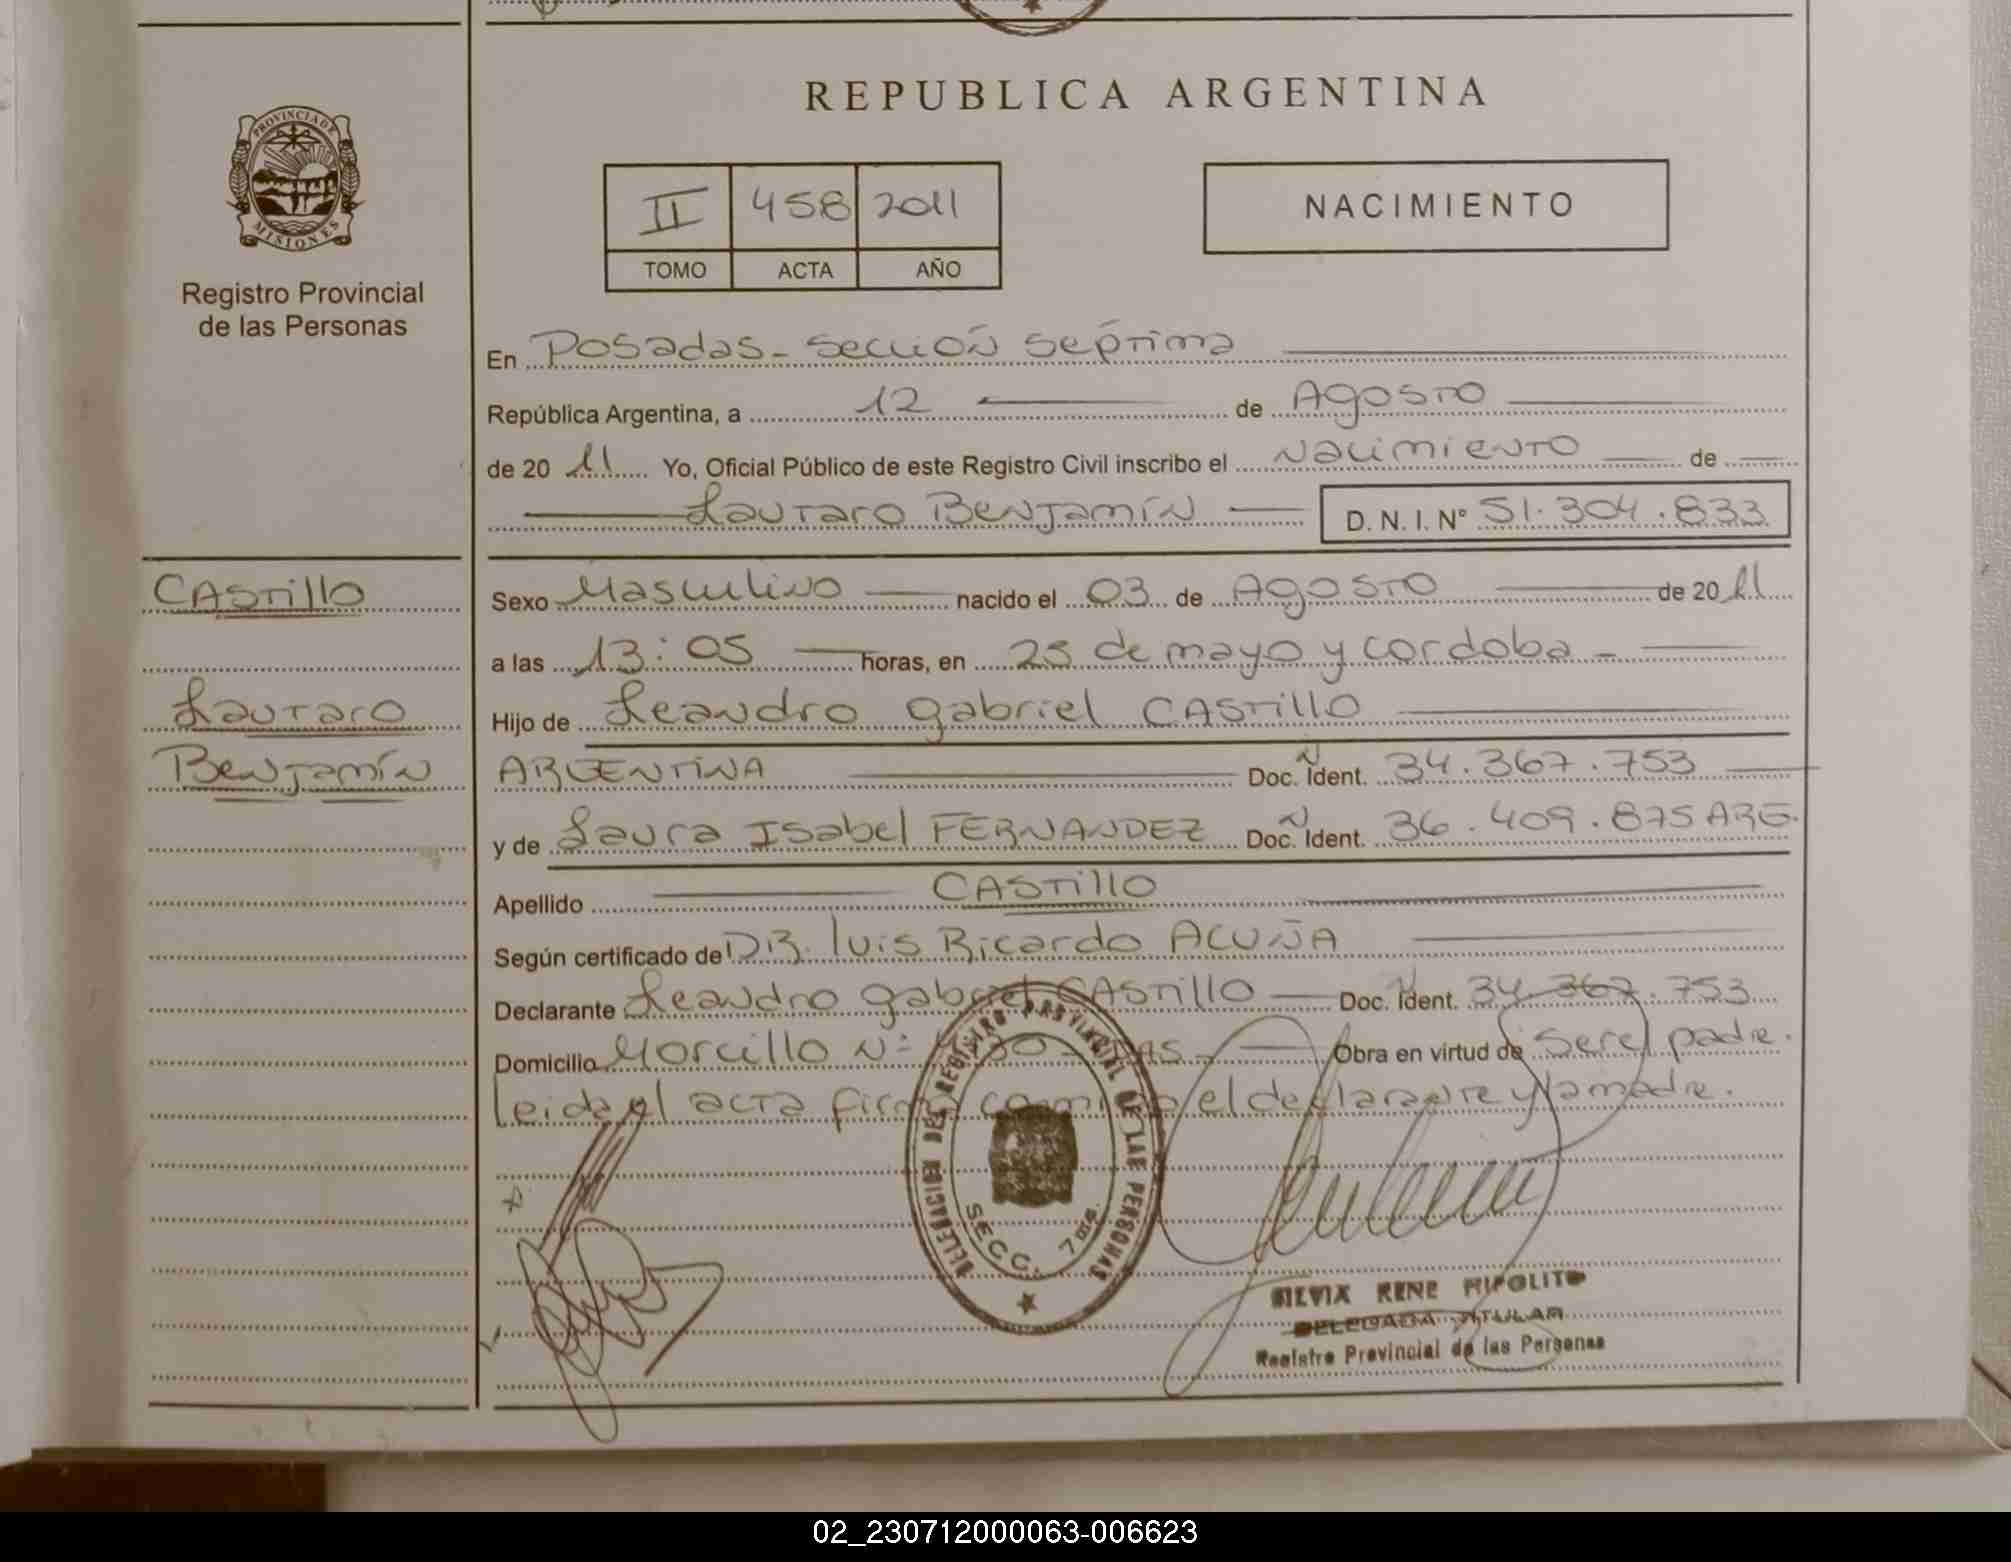 REPUBLICA ARGENTINA
PROVINCIA DE
MISIONES
Registro Provincial
de las Personas
II 458 2011
TOMO ACTA AÑO
NACIMIENTO
En Posadas - Sección Séptima
República Argentina, a 12 de Agosto
de 20 11 Yo, Oficial Público de este Registro Civil inscribo el Nacimiento de
Lautaro Benjamín D. N. I. N° 51.304.833
CASTillo
Lautaro
Benjamín
Sexo Masculino nacido el 03 de Agosto de 20 11
a las 13:05 horas, en 25 de mayo y cordoba -
Hijo de Leandro gabriel CASTillo
ARGENTINA Doc. Ident. 34.367.753
y de Laura Isabel FERNANDEZ Doc. Ident. 36.409.875 ARG.
Apellido CASTillo
Según certificado de DR. luis Ricardo ACUÑA
Declarante Leandro gabriel CASTillo Doc. Ident. 34.367.753
Domicilio Morcillo N° Obra en virtud de ser el padre.
leida el acta firma conmigo el declarante y la madre.
DELEGACION DEL REGISTRO PROVINCIAL DE LAS PERSONAS
SECC. 7ma.
SILVIA RENE HIPOLITO
DELEGADA TITULAR
Registro Provincial de las Personas
02_230712000063-006623